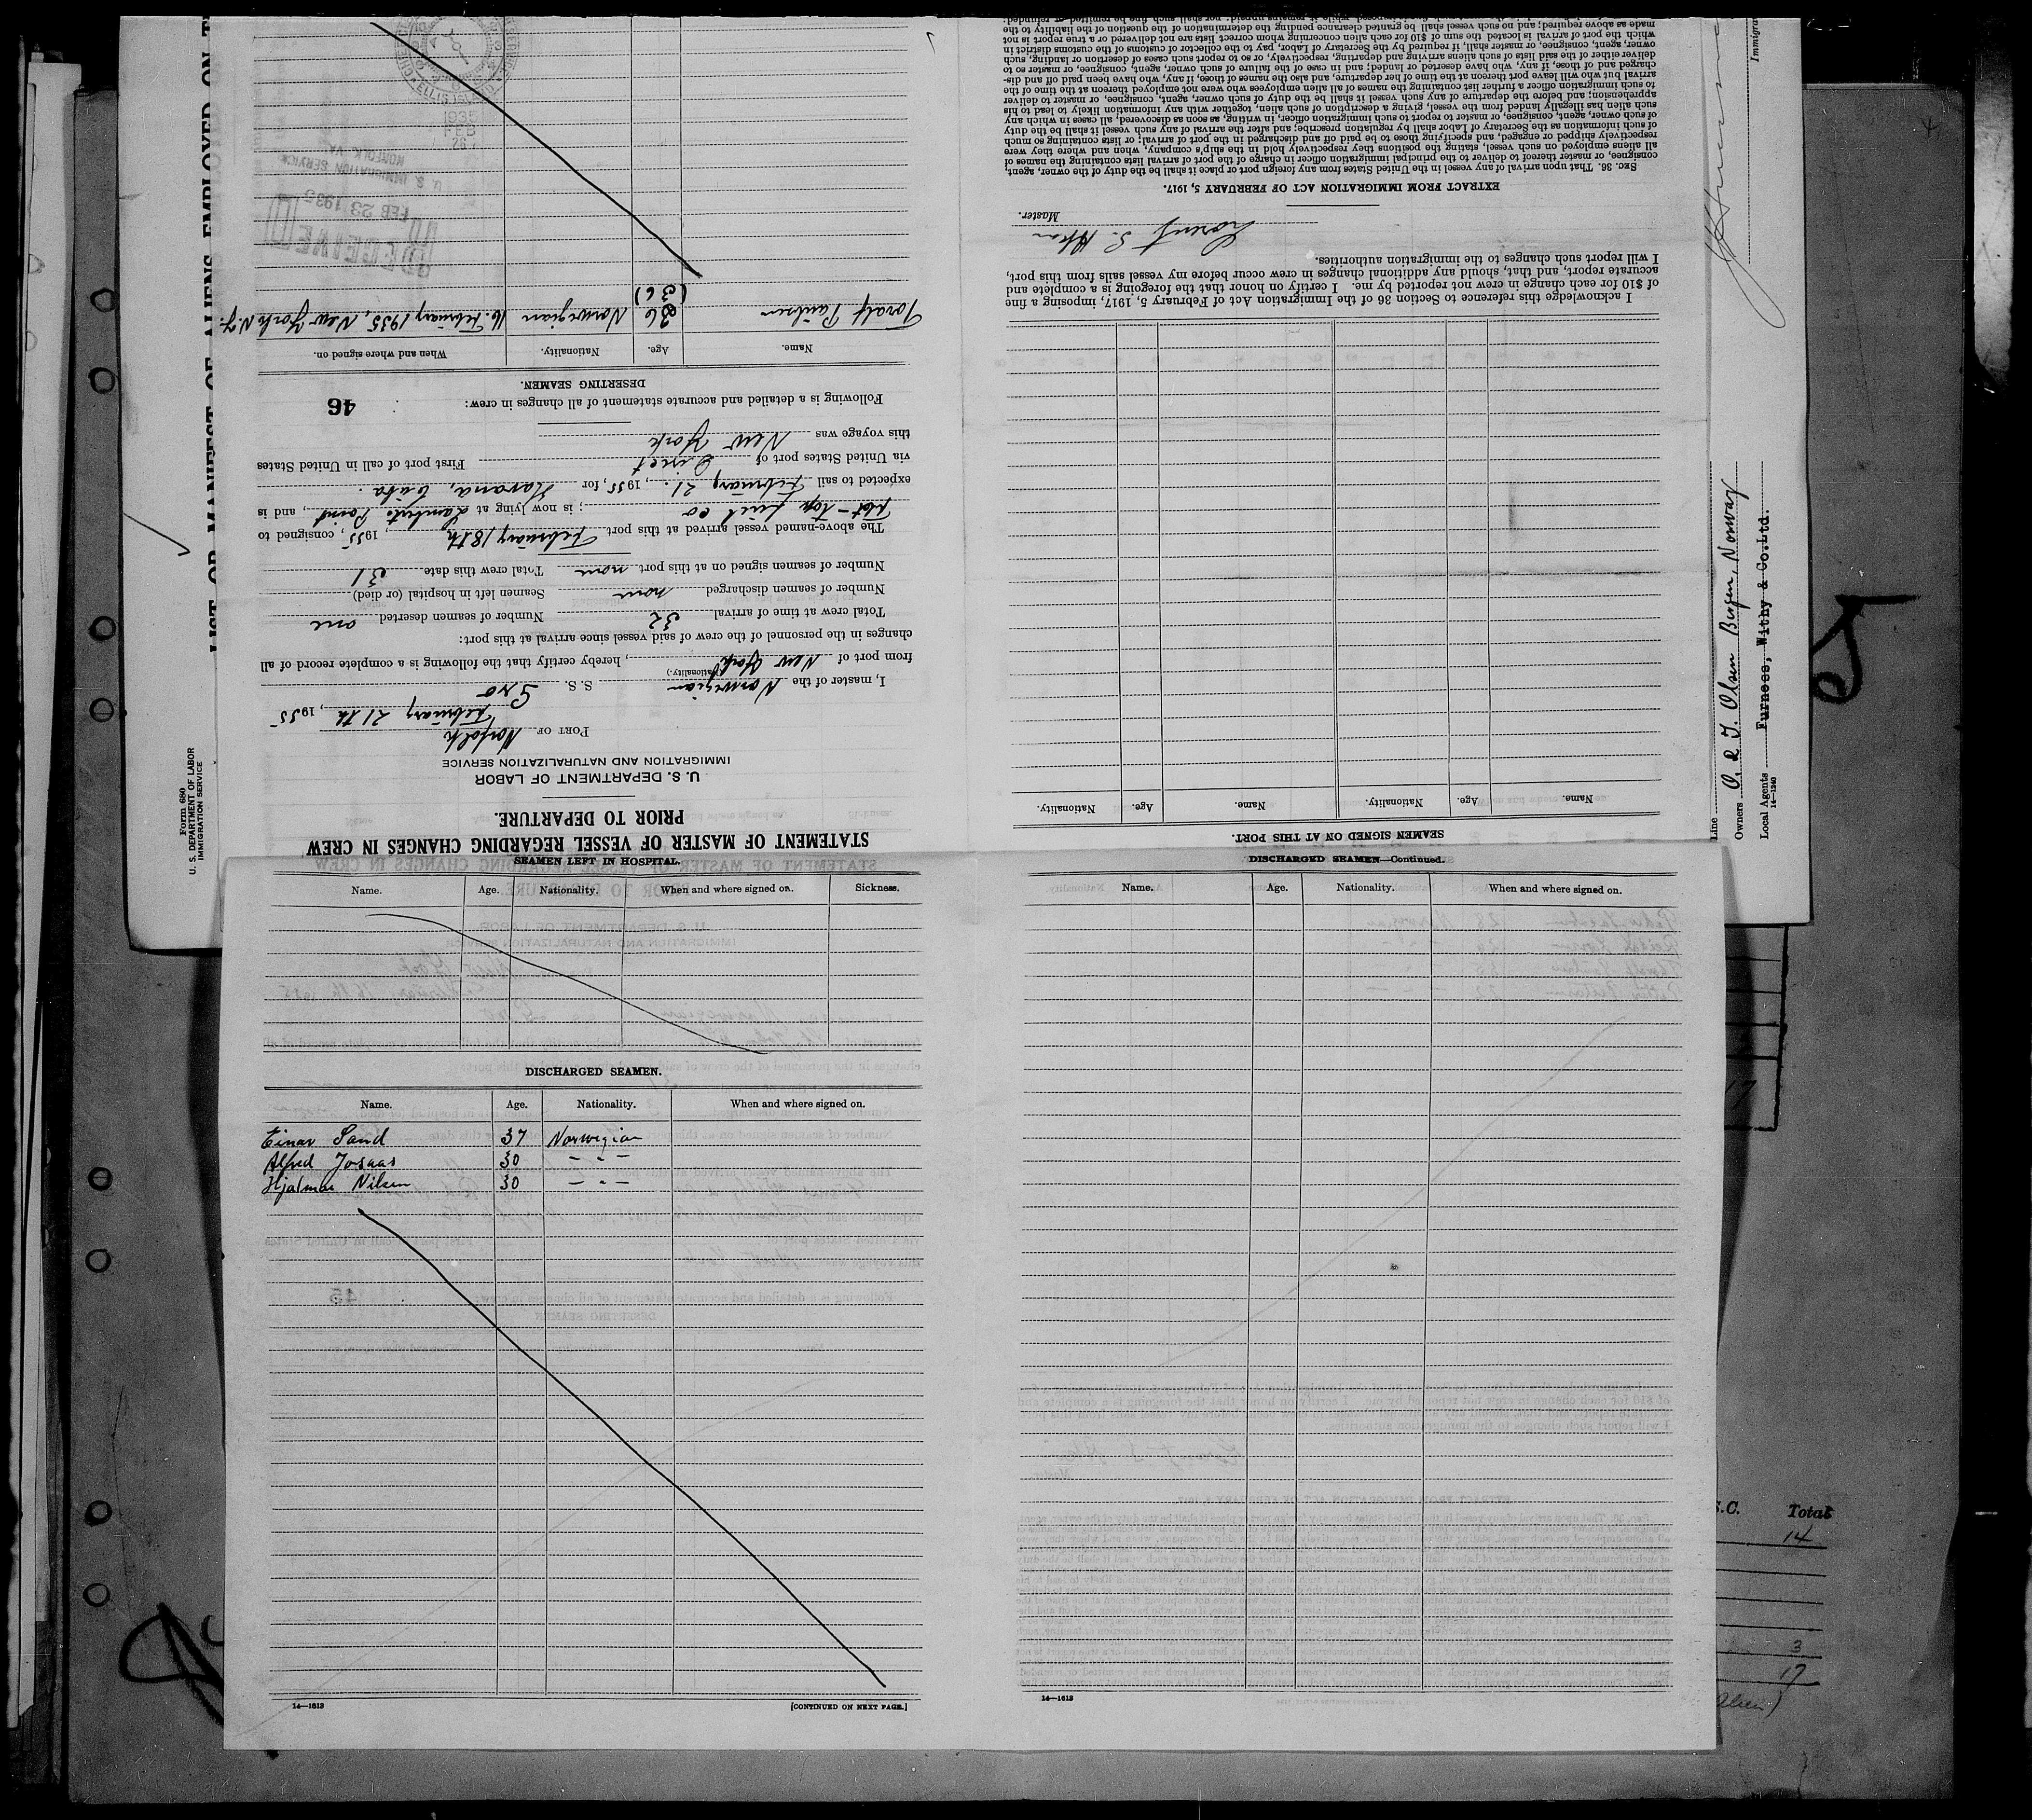 STATEMENT OF MASTER OF VESSEL REGARDING CHANGES IN CREW
PRIOR TO DEPARTURE.
U. S. DEPARTMENT OF LABOR
IMMIGRATION AND NATURALIZATION SERVICE
PORT OF Norfolk
February 21th, 1935
I, master of the Norwegian S. S. Sno
(Nationality.)
from port of New York, hereby certify that the following is a complete record of all
changes in the personnel of the crew of said vessel since arrival at this port:
Total crew at time of arrival 32 Number of seamen deserted one
Number of seamen discharged none Seamen left in hospital (or died)
Number of seamen signed on at this port none Total crew this date 31
The above-named vessel arrived at this port February 18th, 1935, consigned to
; is now lying at Lamberts Point, and is
expected to sail February 21., 1935, for Havana, Cuba.
via United States port of Direct First port of call in United States
this voyage was New York
Following is a detailed and accurate statement of all changes in crew: 46
DESERTING SEAMEN.
Name. Age. Nationality. When and where signed on.
Toralf Paulsen 36 Norwegian 16. February 1935, New York N.Y.
(36)
RECEIVED
FEB 23 1935
U. S. IMMIGRATION SERVICE
NORFOLK, VA.
1935
FEB
26
SEAMEN SIGNED ON AT THIS PORT.
Name. Age. Nationality. Name. Age. Nationality.
I acknowledge this reference to Section 36 of the Immigration Act of February 5, 1917, imposing a fine
of $10 for each change in crew not reported by me. I certify on honor that the foregoing is a complete and
accurate report, and that, should any additional changes in crew occur before my vessel sails from this port,
I will report such changes to the immigration authorities.
Master.
EXTRACT FROM IMMIGRATION ACT OF FEBRUARY 5, 1917.
SEC. 36. That upon arrival of any vessel in the United States from any foreign port or place it shall be the duty of the owner, agent,
consignee, or master thereof to deliver to the principal immigration officer in charge of the port of arrival lists containing the names of
all aliens employed on such vessel, stating the positions they respectively hold in the ship's company, when and where they were
respectively shipped or engaged, and specifying those to be paid off and discharged in the port of arrival; or lists containing so much
of such information as the Secretary of Labor shall by regulation prescribe; and after the arrival of any such vessel it shall be the duty
of such owner, agent, consignee, or master to report to such immigration officer, in writing, as soon as discovered, all cases in which any
such alien has illegally landed from the vessel, giving a description of such alien, together with any information likely to lead to his
apprehension; and before the departure of any such vessel it shall be the duty of such owner, agent, consignee, or master to deliver
to such immigration officer a further list containing the names of all alien employees who were not employed thereon at the time of the
arrival but who will leave port thereon at the time of her departure, and also the names of those, if any, who have been paid off and dis-
charged and of those, if any, who have deserted or landed; and in case of the failure of such owner, agent, consignee, or master to
deliver either of the said lists of such aliens arriving and departing, respectively, or so to report such cases of desertion or landing, such
owner, agent, consignee, or master shall, if required by the Secretary of Labor, pay to the collector of customs of the customs district in
which the port of arrival is located the sum of $10 for each alien concerning whom correct lists are not delivered or a true report is not
made as above required; and no such vessel shall be granted clearance pending the determination of the question of the liability to the
SEAMEN LEFT IN HOSPITAL.
Name. Age. Nationality. When and where signed on. Sickness.
DISCHARGED SEAMEN.
Name. Age. Nationality. When and where signed on.
Einar Sand 37 Norwegian
Alfred Josaas 30 — " —
Hjalmar Nilsen 30 — " —
14—1613 [CONTINUED ON NEXT PAGE.]
DISCHARGED SEAMEN—Continued.
Name. Age. Nationality. When and where signed on.
14—1613
Form 680
U. S. DEPARTMENT OF LABOR
IMMIGRATION SERVICE
LIST OR MANIFEST OF ALIENS EMPLOYED ON T
Line
Owners O. & T. Olsen Bergen, Norway
Local Agents Furness, Withy & Co. Ltd.
14—1240
Immigra
S.C. Total
14
3
17